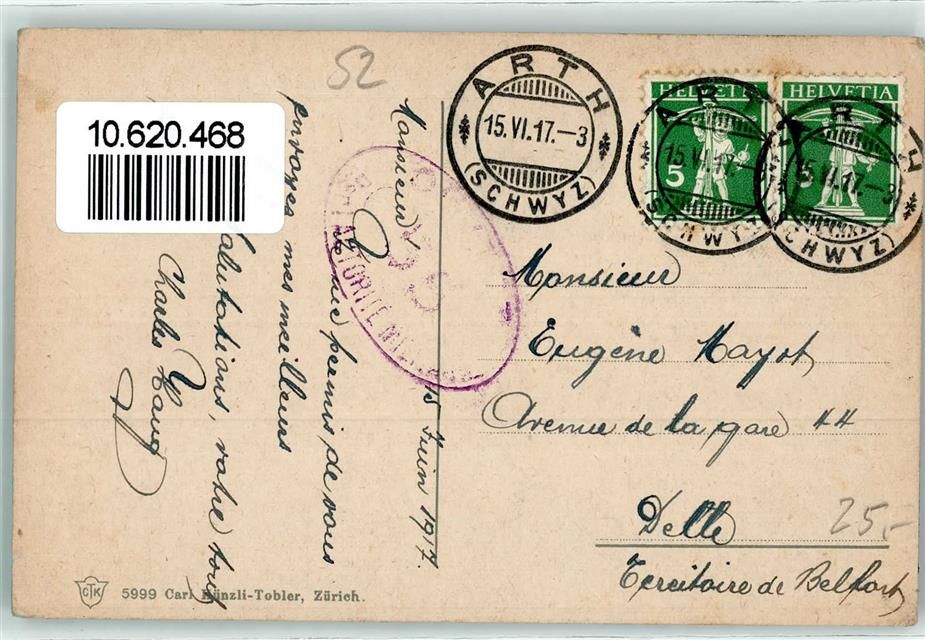 52
10.620.468
ARTH
15.VI.17.–3
(SCHWYZ)
HELVETIA
5
ARTH
15.VI.17.–3
(SCHWYZ)
HELVETIA
5
ARTH
15.VI.17.–3
(SCHWYZ)
AUTORITÉ
15 Juin 1917.
Monsieur,
permis de vous
envoyer mes meilleurs
salutations, votre tout
Charles Haug
Monsieur
Eugène Mayot
Avenue de la gare 44
Delle
Territoire de Belfort
25.-
CTK
5999 Carl Künzli-Tobler, Zürich.